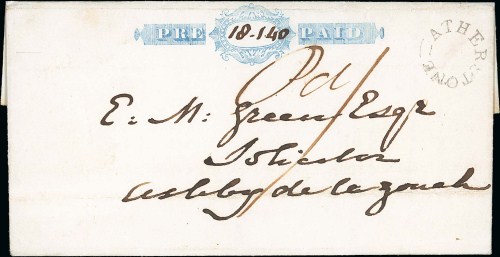 PRE 18-1 40 PAID
ATHERSTONE
Pd
E: M: Green Esqr
Solicitor
Ashby de la Zouch